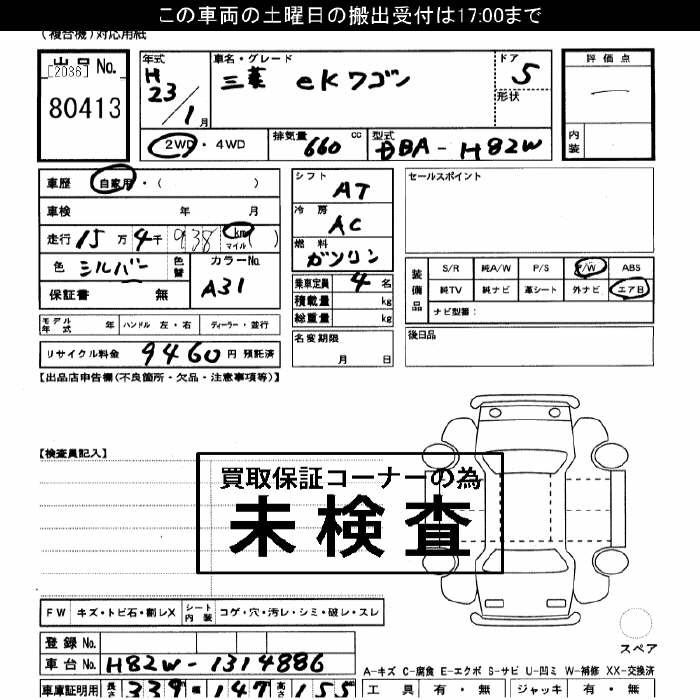 この車両の土曜日の搬出受付は17:00まで
(複合機)対応用紙
出品No.
[2036]
80413
年式
H 23/1月
車名・グレード
三菱 eKワゴン
ドア
5
形状
評価点
―
内装
2WD・4WD
排気量 660 cc
型式 DBA-H82W
車歴 自家用・( )
車検 年 月
走行 15万4千938 km マイル ( )
色 シルバー 色替
カラーNo. A31
保証書 無
シフト AT
冷房 AC
燃料 ガソリン
乗車定員 4名
積載量 kg
総重量 kg
セールスポイント
装備品
S/R 純A/W P/S P/W ABS
純TV 純ナビ 革シート 外ナビ エアB
ナビ型番:
モデル年式 年 ハンドル 左・右 ディーラー・並行
リサイクル料金 9460円 預託済
名変期限
月 日
後日品
【出品店申告欄(不良箇所・欠品・注意事項等)】
【検査員記入】
買取保証コーナーの為
未検査
FW キズ・トビ石・割レX シート内装 コゲ・穴・汚レ・シミ・破レ・スレ
スペア
登録No.
車台No. H82W-1314886
A-キズ C-腐食 E-エクボ S-サビ U-凹ミ W-補修 XX-交換済
車庫証明用 長さ 339 幅 147 高さ 155
工具 有・無 ジャッキ 有・無